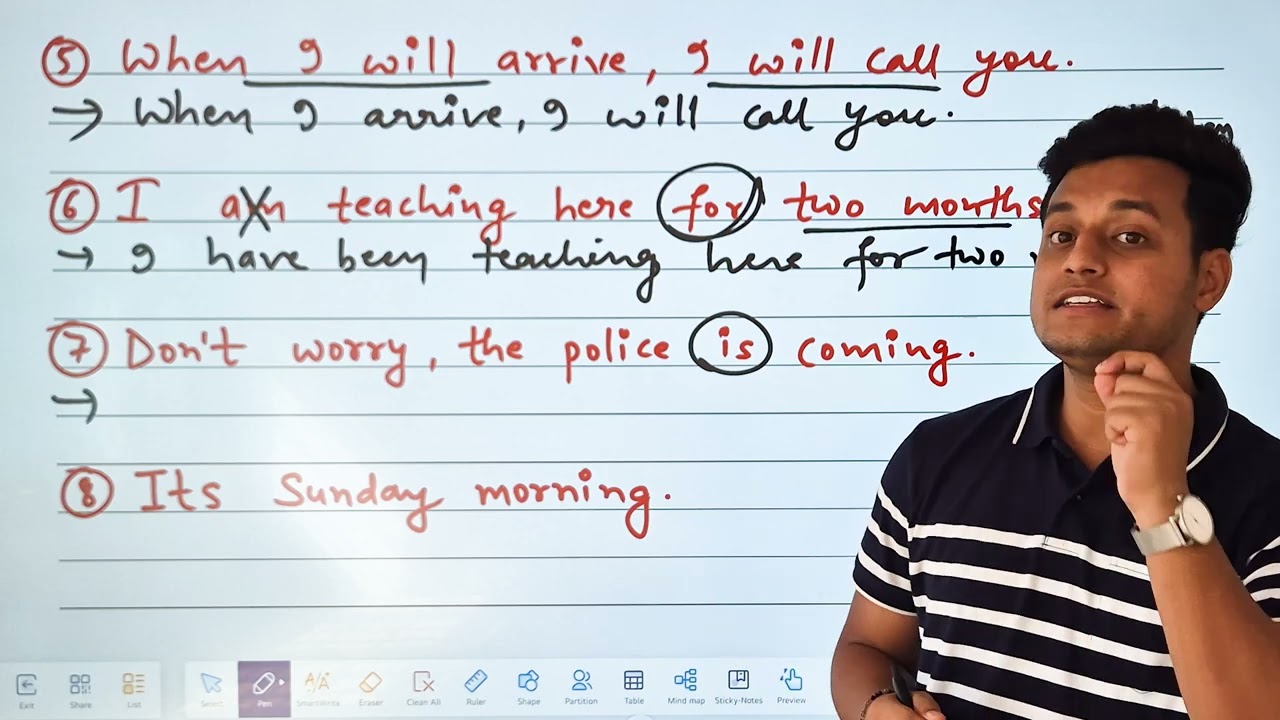 ⑤ When I will arrive, I will call you.
→ When I arrive, I will call you.
⑥ I am teaching here for two months
→ I have been teaching here for two
⑦ Don't worry, the police is coming.
→
⑧ Its Sunday morning.
Exit Share List Select Pen SmartWrite Eraser Clean All Ruler Shape Partition Table Mind map Sticky-Notes Preview